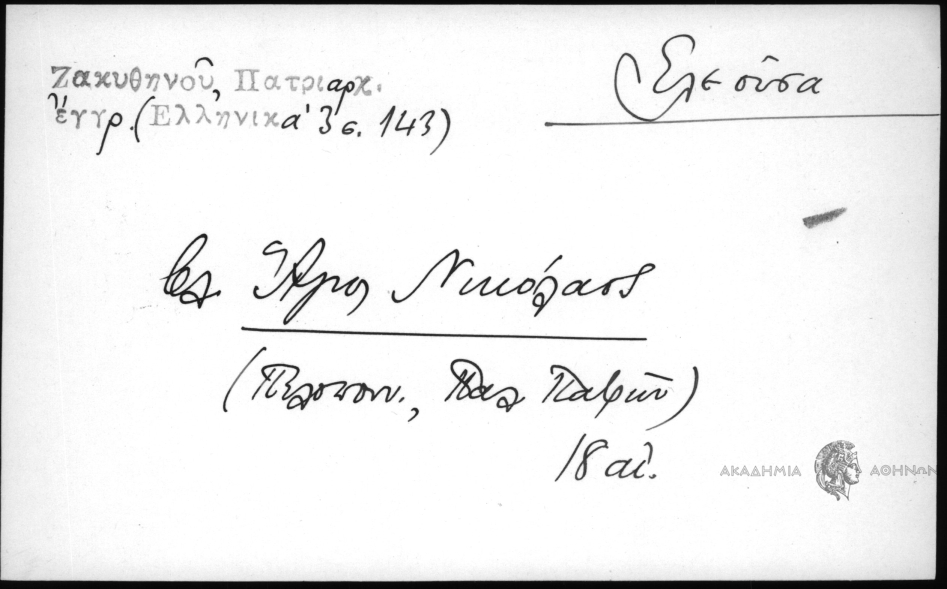 Ζακυθηνοῦ, Πατριαρχ.
ἔγγρ. (Ἑλληνικά 3 σ. 143)
Ἐλεοῦσα
βλ. Ἅγιος Νικόλαος
(Πελοπονν., Παλ. Πατρῶν)
18 αἰ.
ΑΚΑΔΗΜΙΑ ΑΘΗΝΩΝ